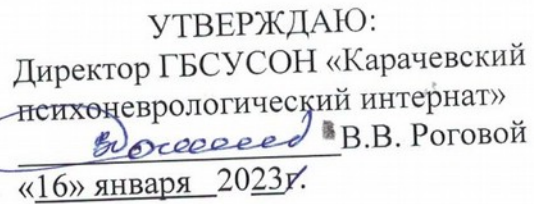 УТВЕРЖДАЮ:
Директор ГБСУСОН «Карачевский
психоневрологический интернат»
В.В. Роговой
«16» января 2023г.